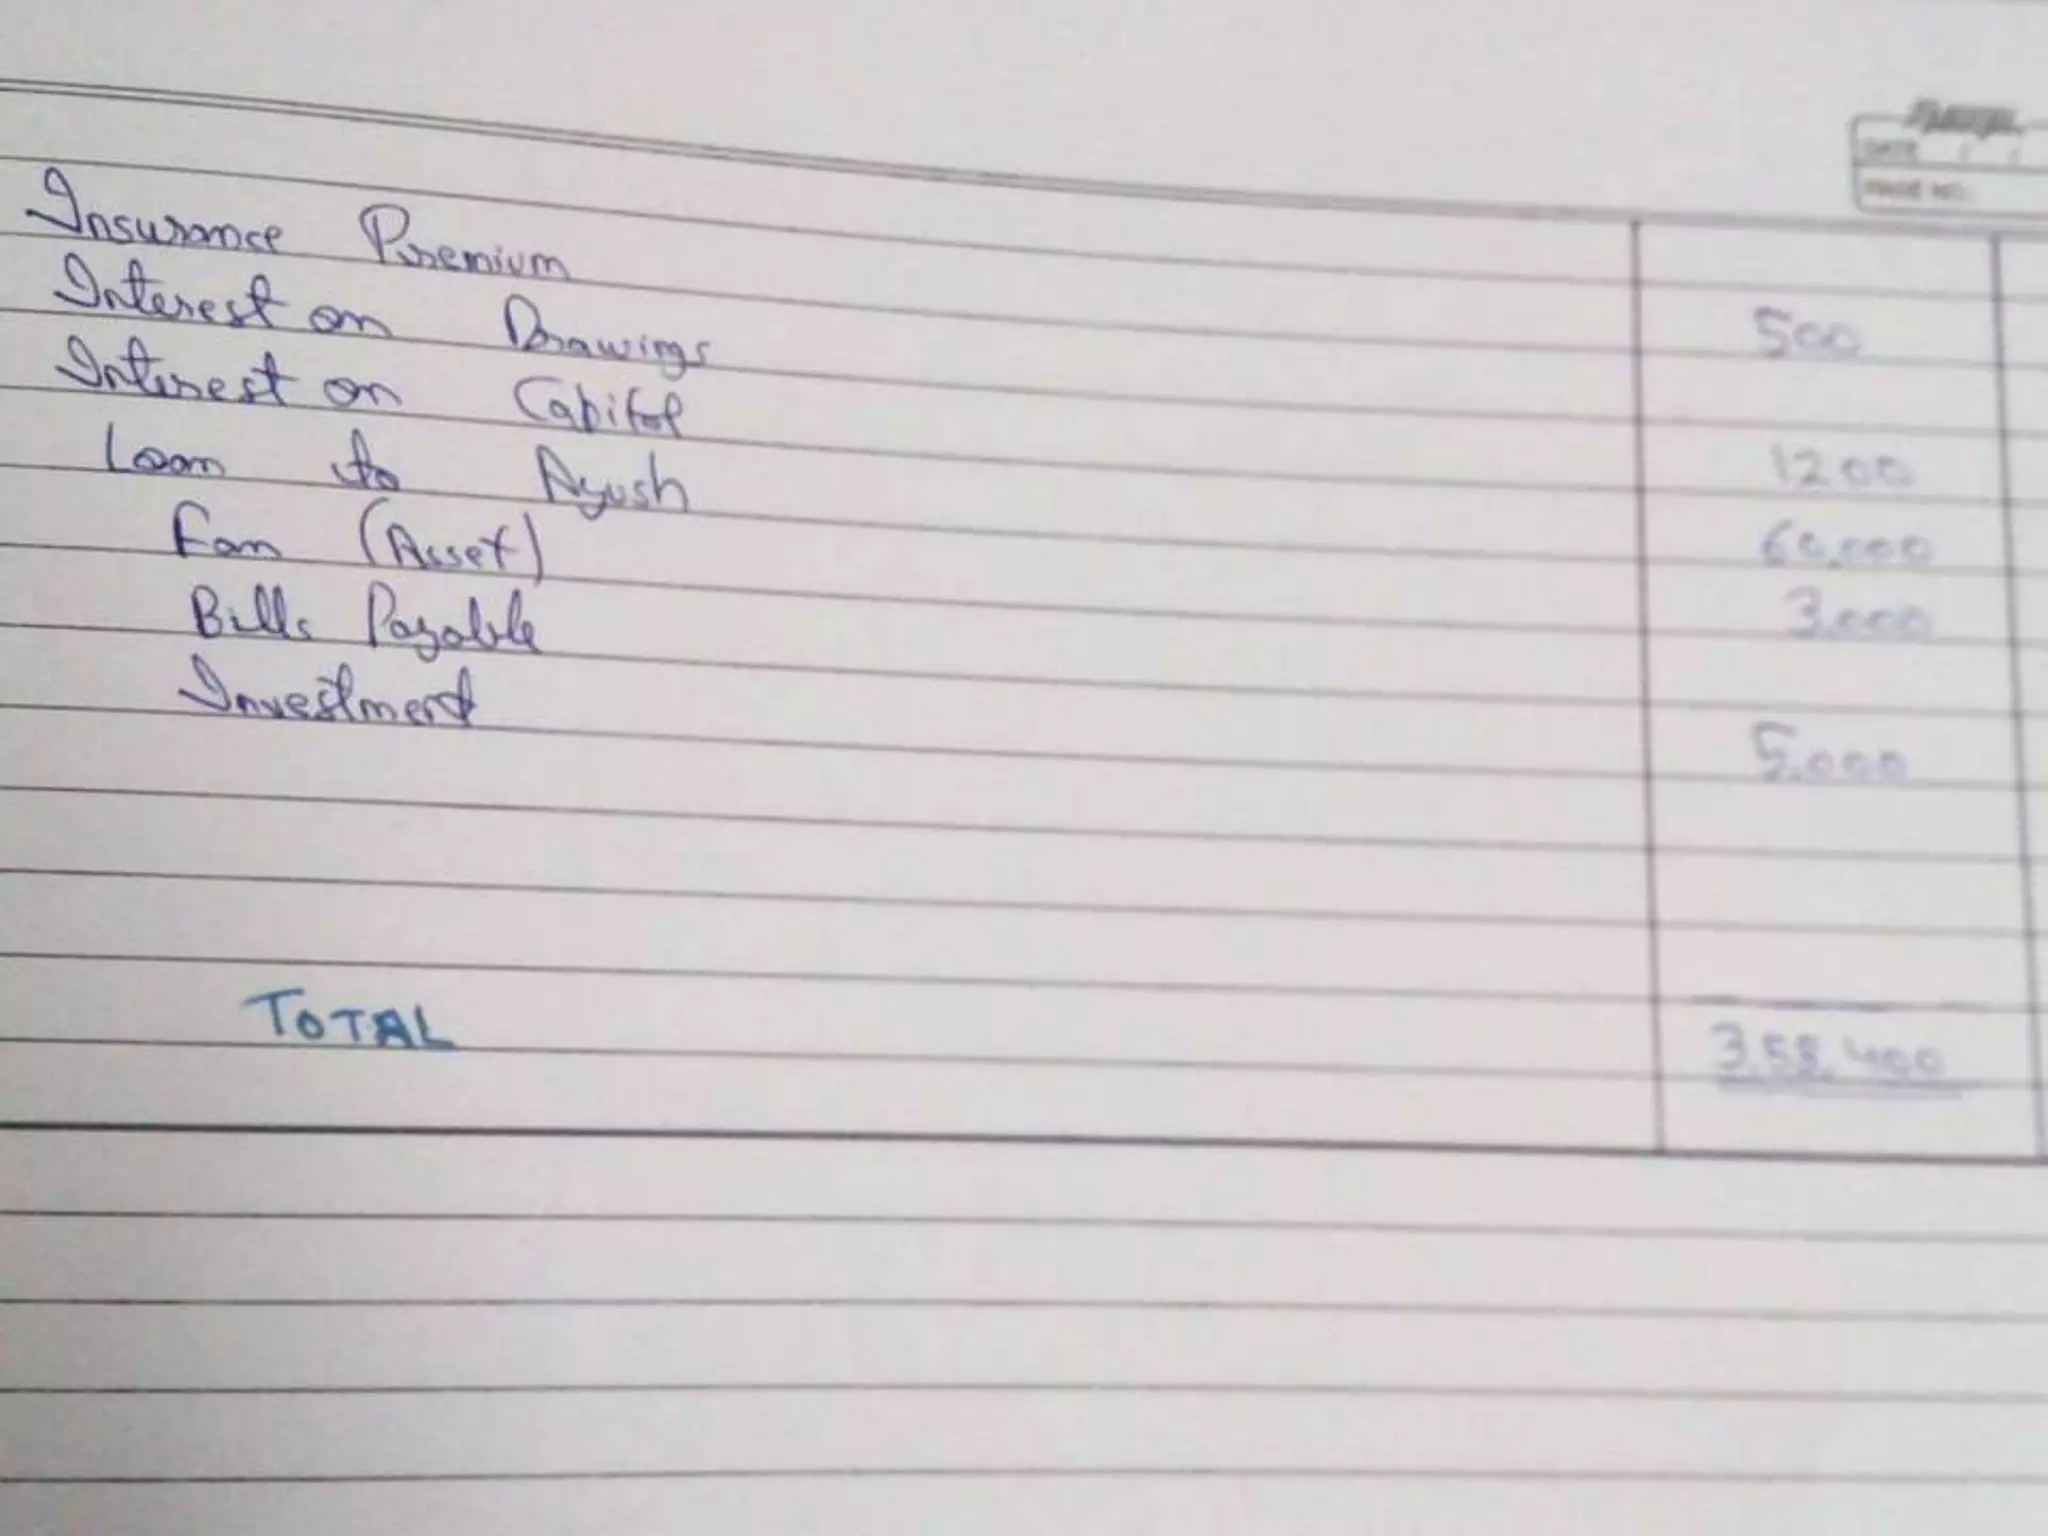 DATE / /
PAGE NO.
Insurance Premium 500
Interest on Drawings
Interest on Capital 1200
Loan to Ayush 60,000
Fan (Asset) 3,000
Bills Payable
Investment 5,000
TOTAL 3,58,400